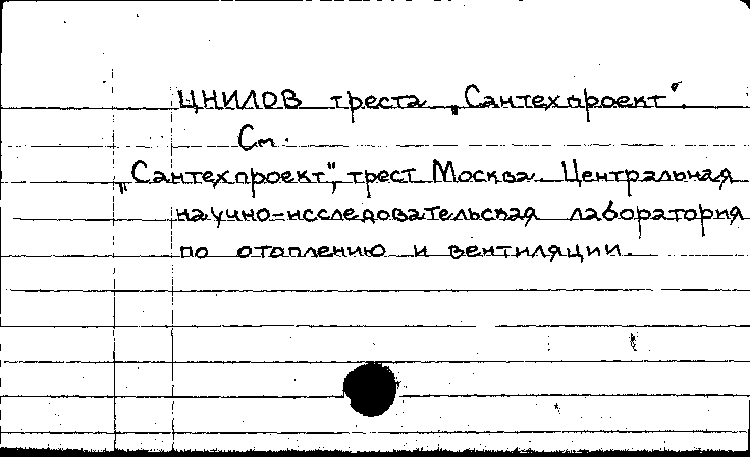 ЦНИЛОВ треста „Сантехпроект".
См.
„Сантехпроект", трест Москва. Центральная
научно-исследовательская лаборатория
по отоплению и вентиляции.